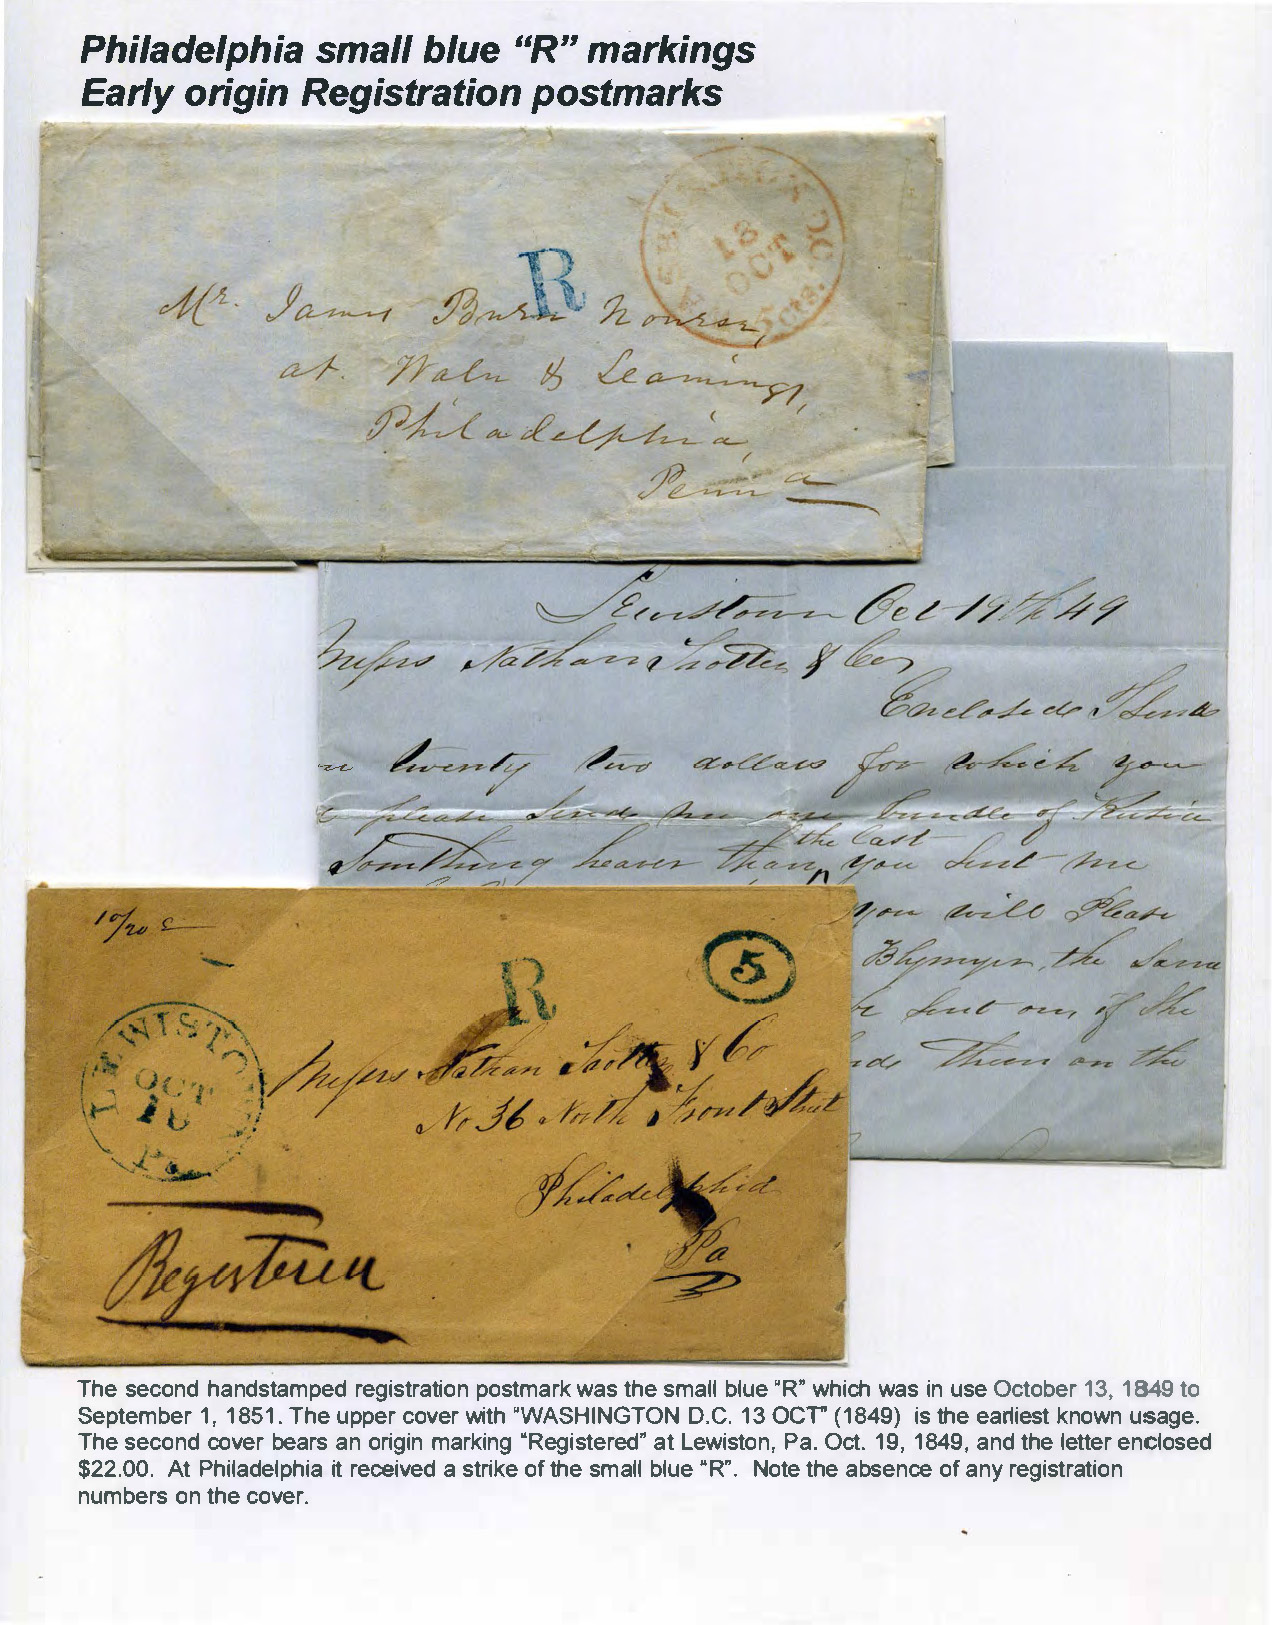 Philadelphia small blue “R” markings
Early origin Registration postmarks
WASHINGTON D.C.
13
OCT
5 cts.
R
Mr. James Burn Nourse,
at Waln & Leamings,
Philadelphia,
Penna
Lewistown Oct 19th 49
Messrs Nathan Trotter & Co
Enclosed I send
twenty two dollars for which you
please send me one bundle of Rusia
the last
Something heaver than you sent me
you will Please
Blymyer, the same
be sent on, if she
them on the
10/20
R
5
LEWISTO
OCT
Pa
Messrs Nathan Trotter & Co
No 36 North Front Street
Philadelphia
Pa
Registered
The second handstamped registration postmark was the small blue “R” which was in use October 13, 1849 to
September 1, 1851. The upper cover with “WASHINGTON D.C. 13 OCT” (1849) is the earliest known usage.
The second cover bears an origin marking “Registered” at Lewiston, Pa. Oct. 19, 1849, and the letter enclosed
$22.00. At Philadelphia it received a strike of the small blue “R”. Note the absence of any registration
numbers on the cover.